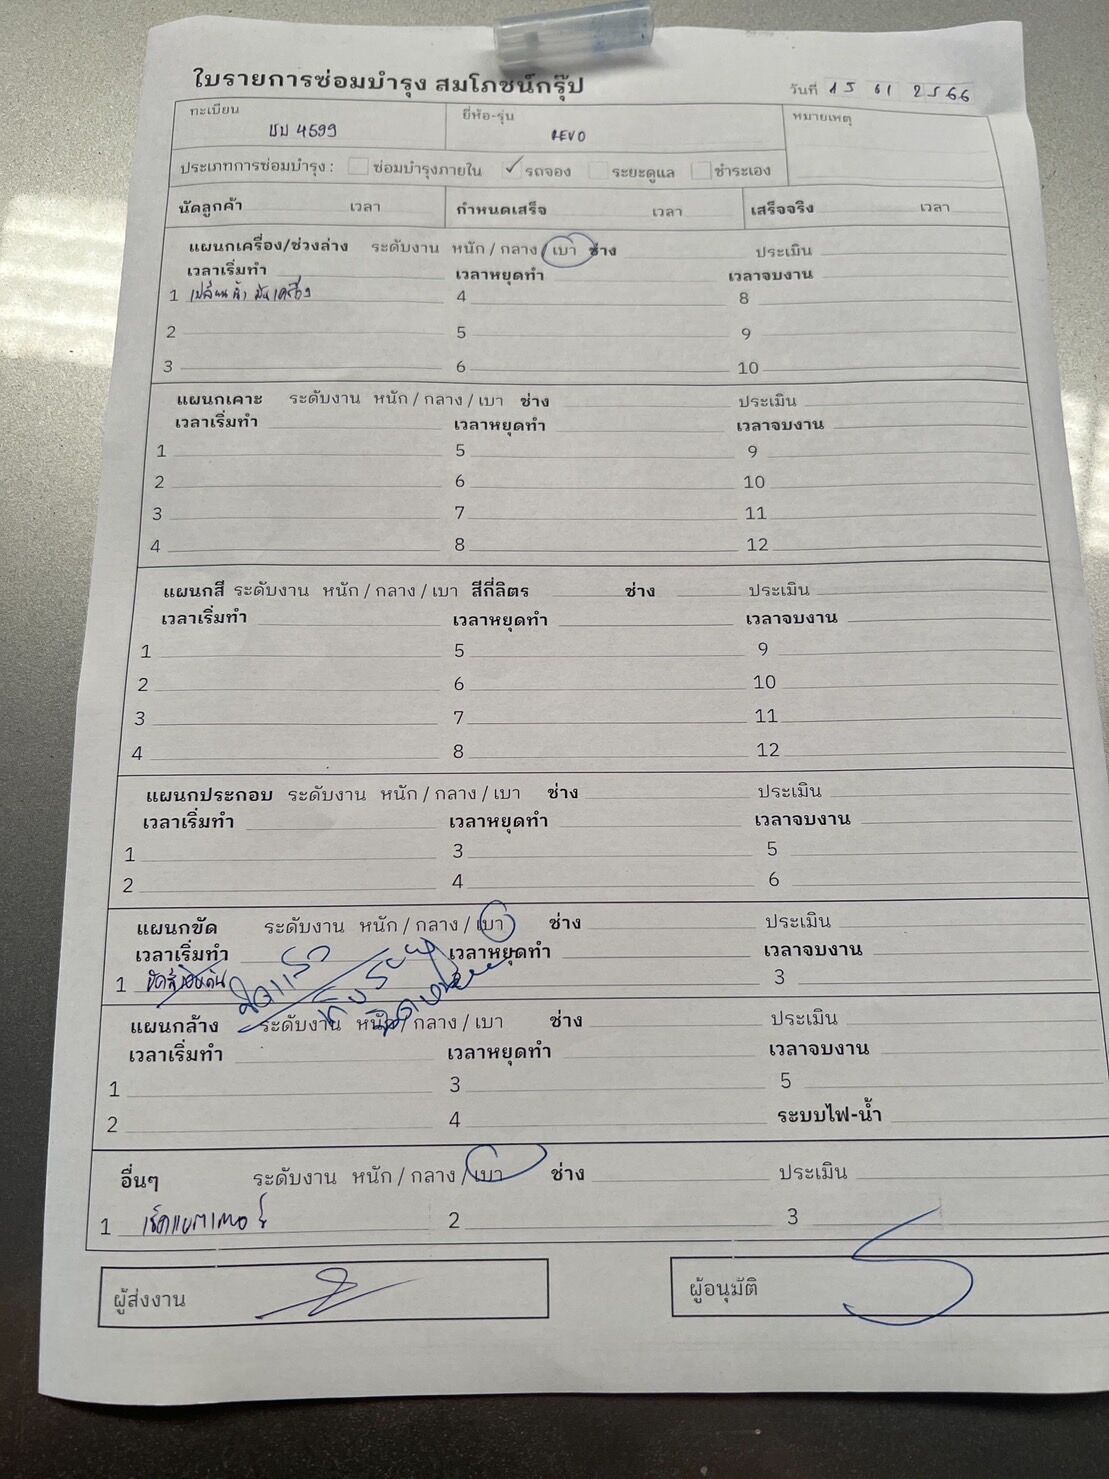 ใบรายการซ่อมบำรุง สมโภชน์กรุ๊ป
วันที่ 15 01 2566
ทะเบียน ยี่ห้อ-รุ่น หมายเหตุ
4599 REVO
ประเภทการซ่อมบำรุง : ซ่อมบำรุงภายใน ✓ รถจอง ระยะดูแล ชำระเอง
นัดลูกค้า เวลา กำหนดเสร็จ เวลา เสร็จจริง เวลา
แผนกเครื่อง/ช่วงล่าง ระดับงาน หนัก / กลาง / เบา ช่าง ประเมิน
เวลาเริ่มทำ เวลาหยุดทำ เวลาจบงาน
1 เปลี่ยนน้ำมันเครื่อง 4 8
2 5 9
3 6 10
แผนกเคาะ ระดับงาน หนัก / กลาง / เบา ช่าง ประเมิน
เวลาเริ่มทำ เวลาหยุดทำ เวลาจบงาน
1 5 9
2 6 10
3 7 11
4 8 12
แผนกสี ระดับงาน หนัก / กลาง / เบา สีกี่ลิตร ช่าง ประเมิน
เวลาเริ่มทำ เวลาหยุดทำ เวลาจบงาน
1 5 9
2 6 10
3 7 11
4 8 12
แผนกประกอบ ระดับงาน หนัก / กลาง / เบา ช่าง ประเมิน
เวลาเริ่มทำ เวลาหยุดทำ เวลาจบงาน
1 3 5
2 4 6
แผนกขัด ระดับงาน หนัก / กลาง / เบา ช่าง ประเมิน
เวลาเริ่มทำ เวลาหยุดทำ เวลาจบงาน
1 3
แผนกล้าง ระดับงาน หนัก / กลาง / เบา ช่าง ประเมิน
เวลาเริ่มทำ เวลาหยุดทำ เวลาจบงาน
1 3 5
2 4 ระบบไฟ-น้ำ
อื่นๆ ระดับงาน หนัก / กลาง / เบา ช่าง ประเมิน
1 เช็คแบตเตอรี่ 2 3
ผู้ส่งงาน ผู้อนุมัติ